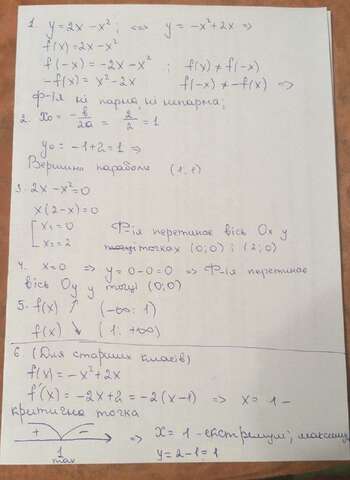 1. y = 2x - x²; <=> y = -x² + 2x =>
f(x) = 2x - x²
f(-x) = -2x - x² ; f(x) ≠ f(-x)
-f(x) = x² - 2x f(-x) ≠ -f(x) =>
Ф-ія ні парна ні непарна;
2. x₀ = -b/2a = 2/2 = 1
y₀ = -1 + 2 = 1 =>
Вершина параболи (1; 1)
3. 2x - x² = 0
x(2 - x) = 0
[ x₁ = 0 Ф-ія перетинає вісь Ox у
x₂ = 2 точках (0; 0) і (2; 0)
4. x = 0 => y = 0 - 0 = 0 => Ф-ія перетинає
вісь Oy у точці (0; 0)
5. f(x) ↑ (-∞; 1)
f(x) ↘ (1; +∞)
6. (Для старших класів)
f(x) = -x² + 2x
f'(x) = -2x + 2 = -2(x - 1) => x = 1 -
критична точка
+ - => x = 1 - екстремум; максимум
1 y = 2 - 1 = 1
max